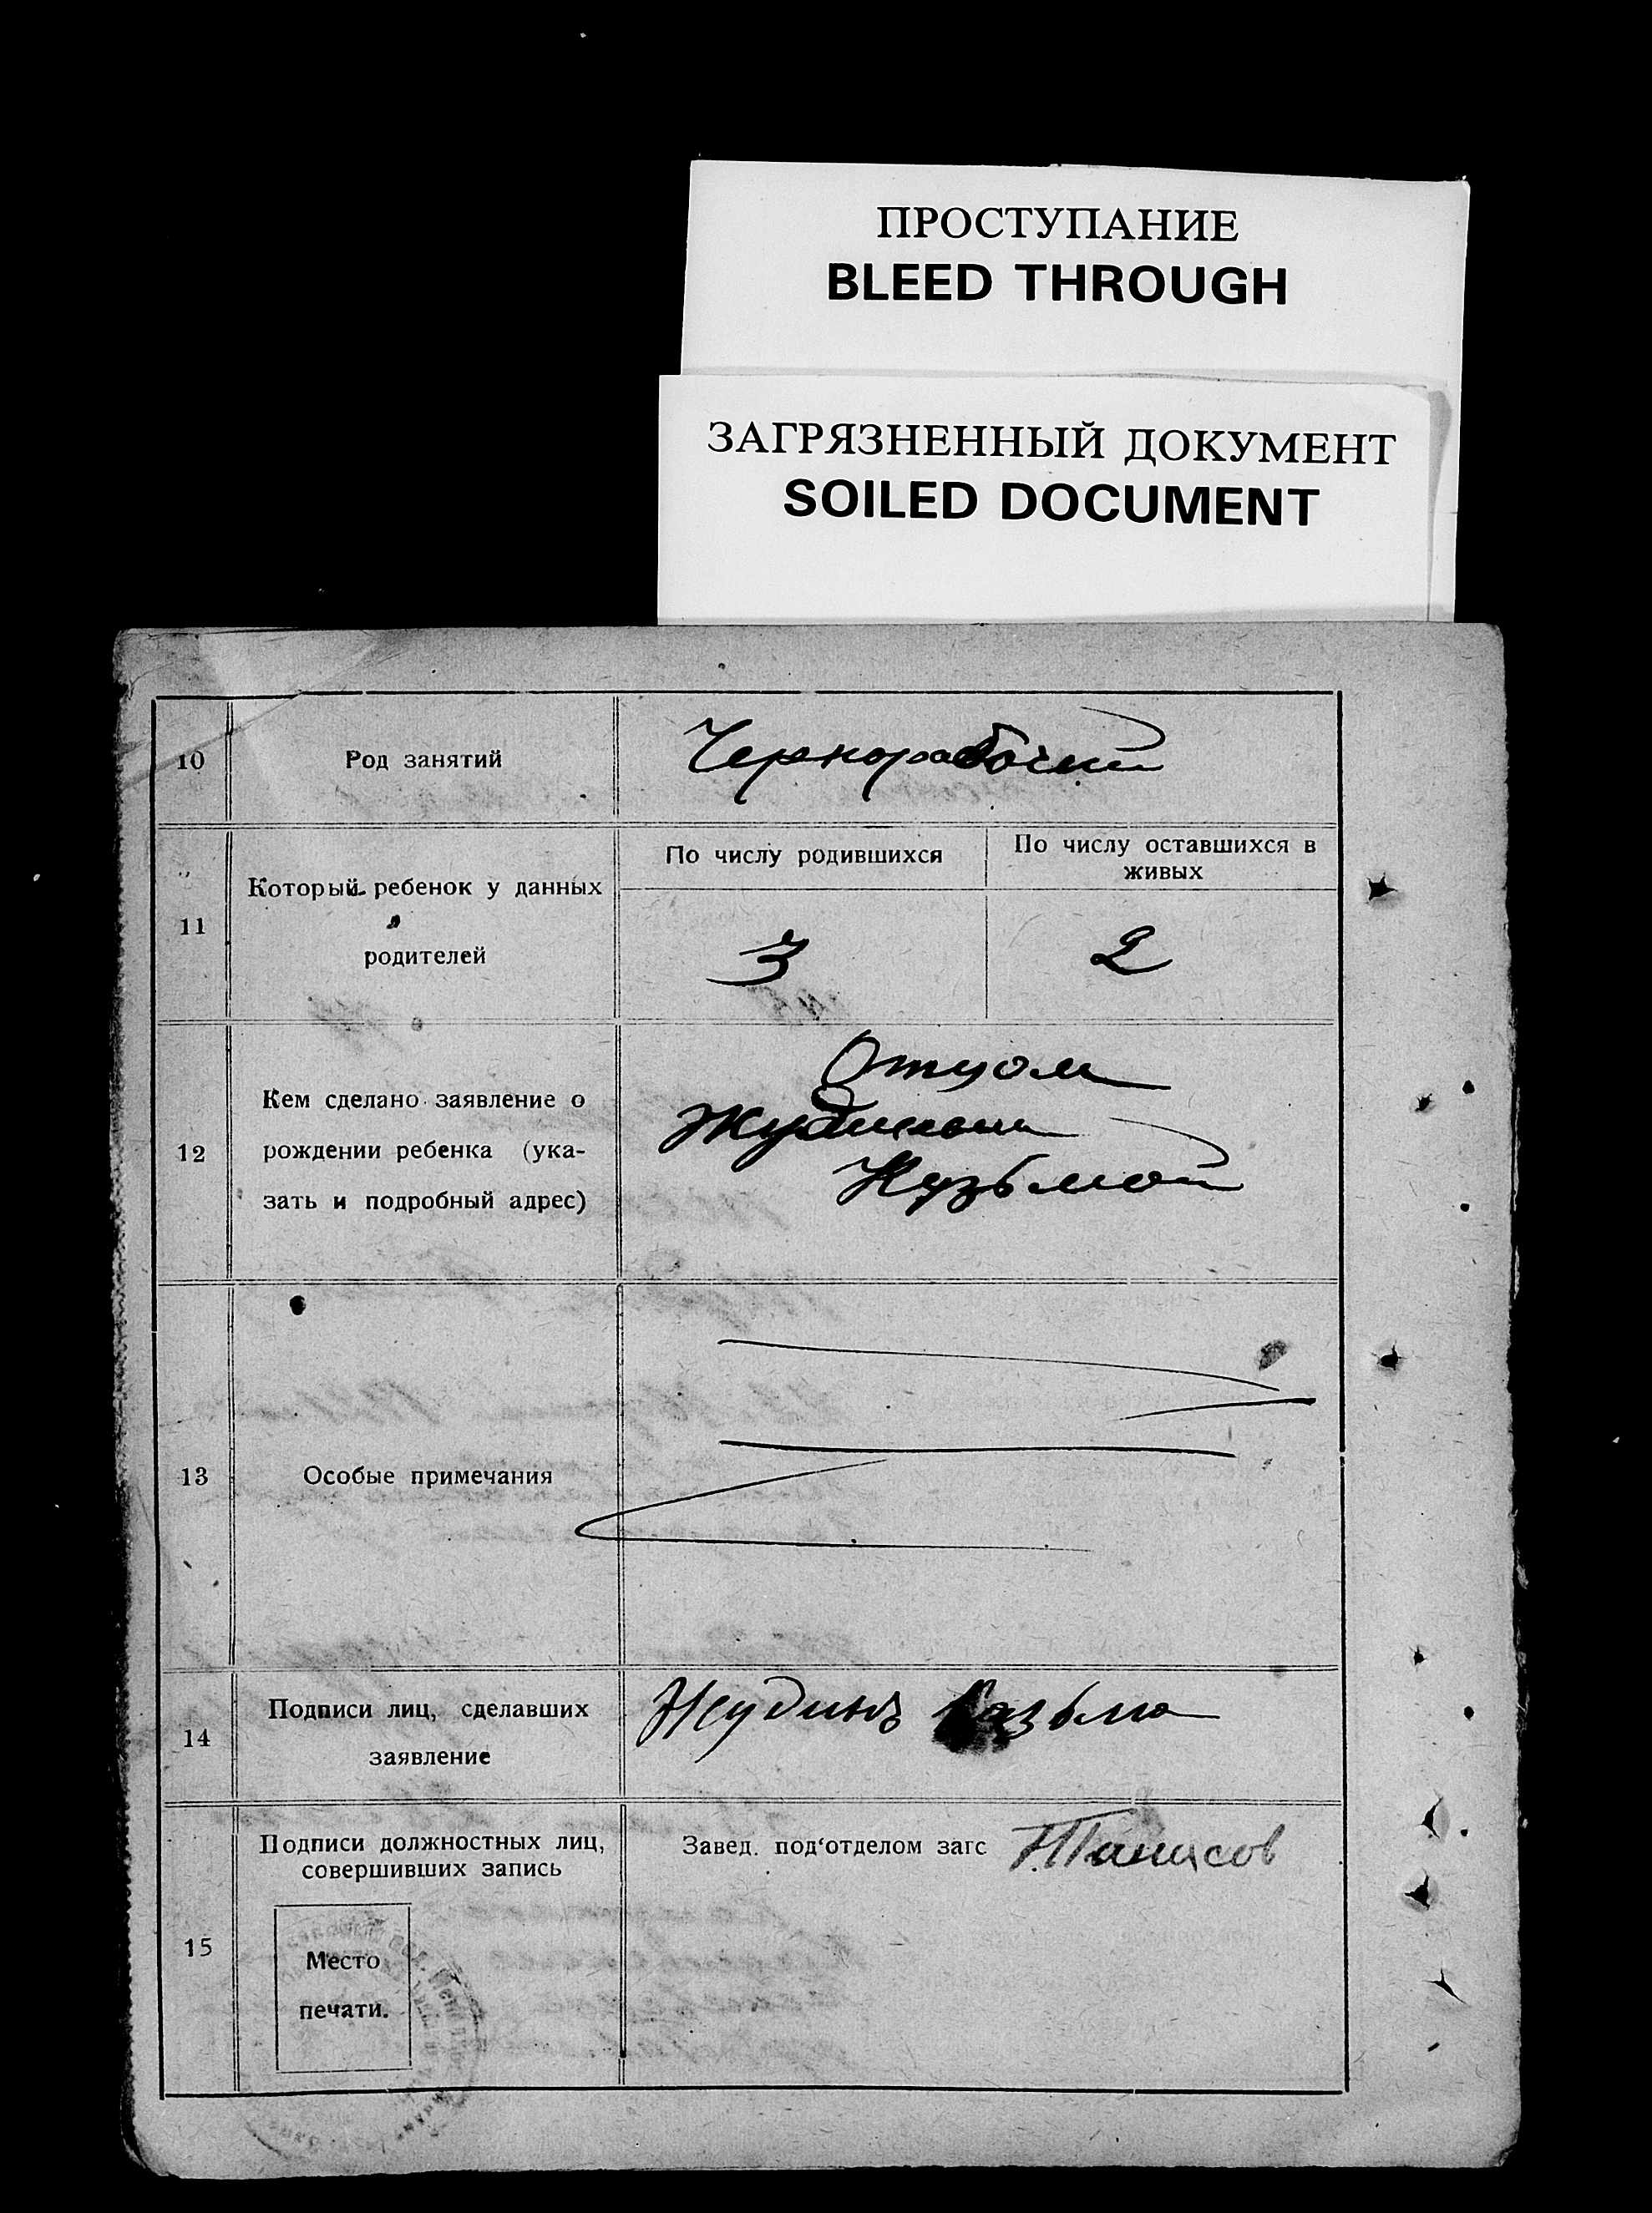 ПРОСТУПАНИЕ
BLEED THROUGH
ЗАГРЯЗНЕННЫЙ ДОКУМЕНТ
SOILED DOCUMENT
10 Род занятий Чернорабочий
11 Который ребенок у данных родителей
По числу родившихся
По числу оставшихся в живых
3 2
12 Кем сделано заявление о
рождении ребенка (ука-
зать и подробный адрес)
Отцом
Жудиным
Кузьмой
13 Особые примечания
14 Подписи лиц, сделавших
заявление
Жудинъ Казьма
15 Подписи должностных лиц,
совершивших запись
Завед. под‘отделом загс
Место
печати.